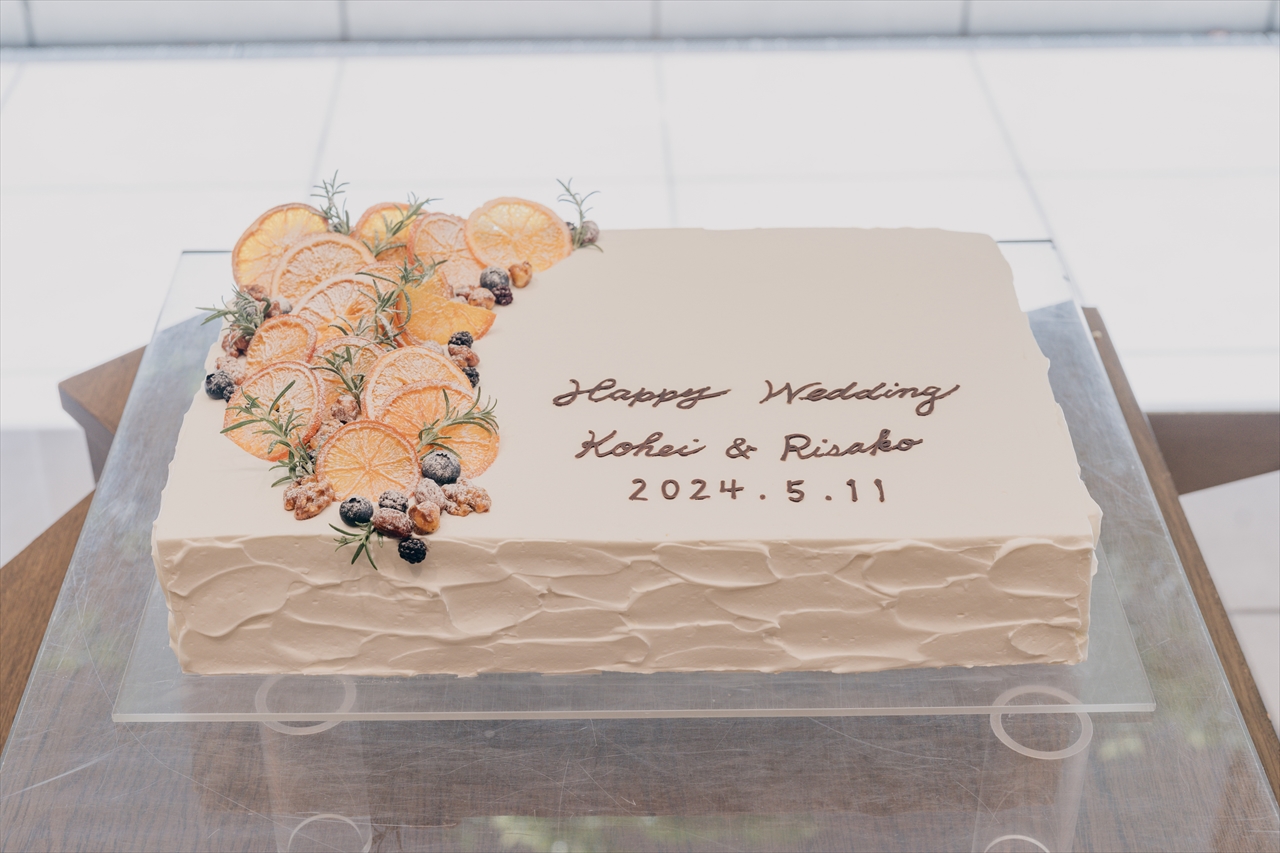 Happy Wedding
Kohei & Risako
2024.5.11